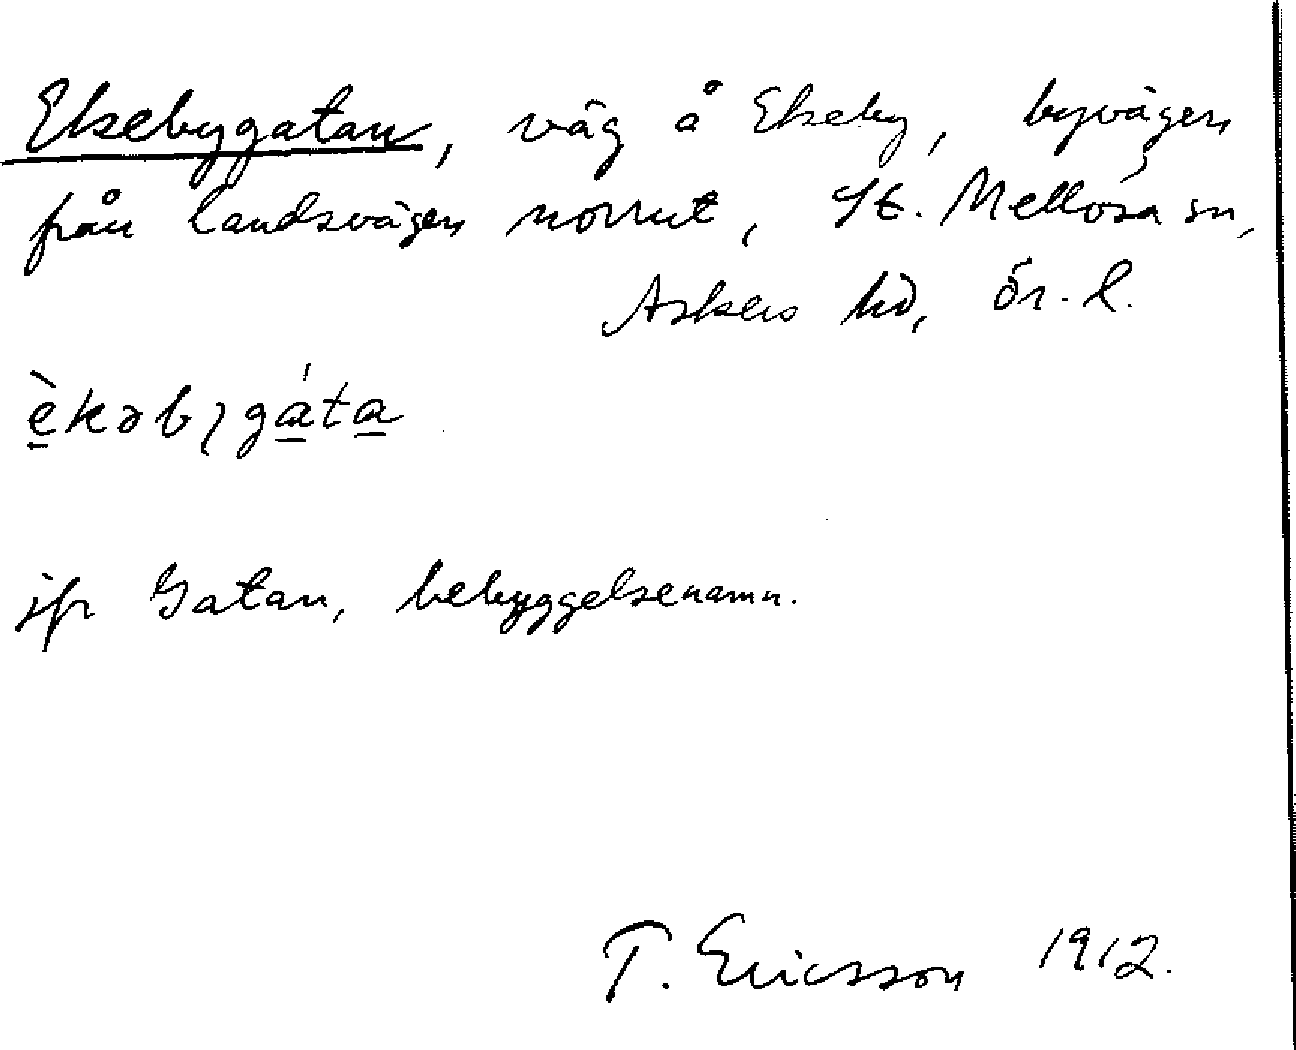 Ekebygatan, väg å Ekeby, byvägen
från landsvägen norrut, St. Mellösa sn,
Askers hd, Ör. l.
èkəbygáta
jfr Gatan, bebyggelsenamn.
T. Ericsson 1912.